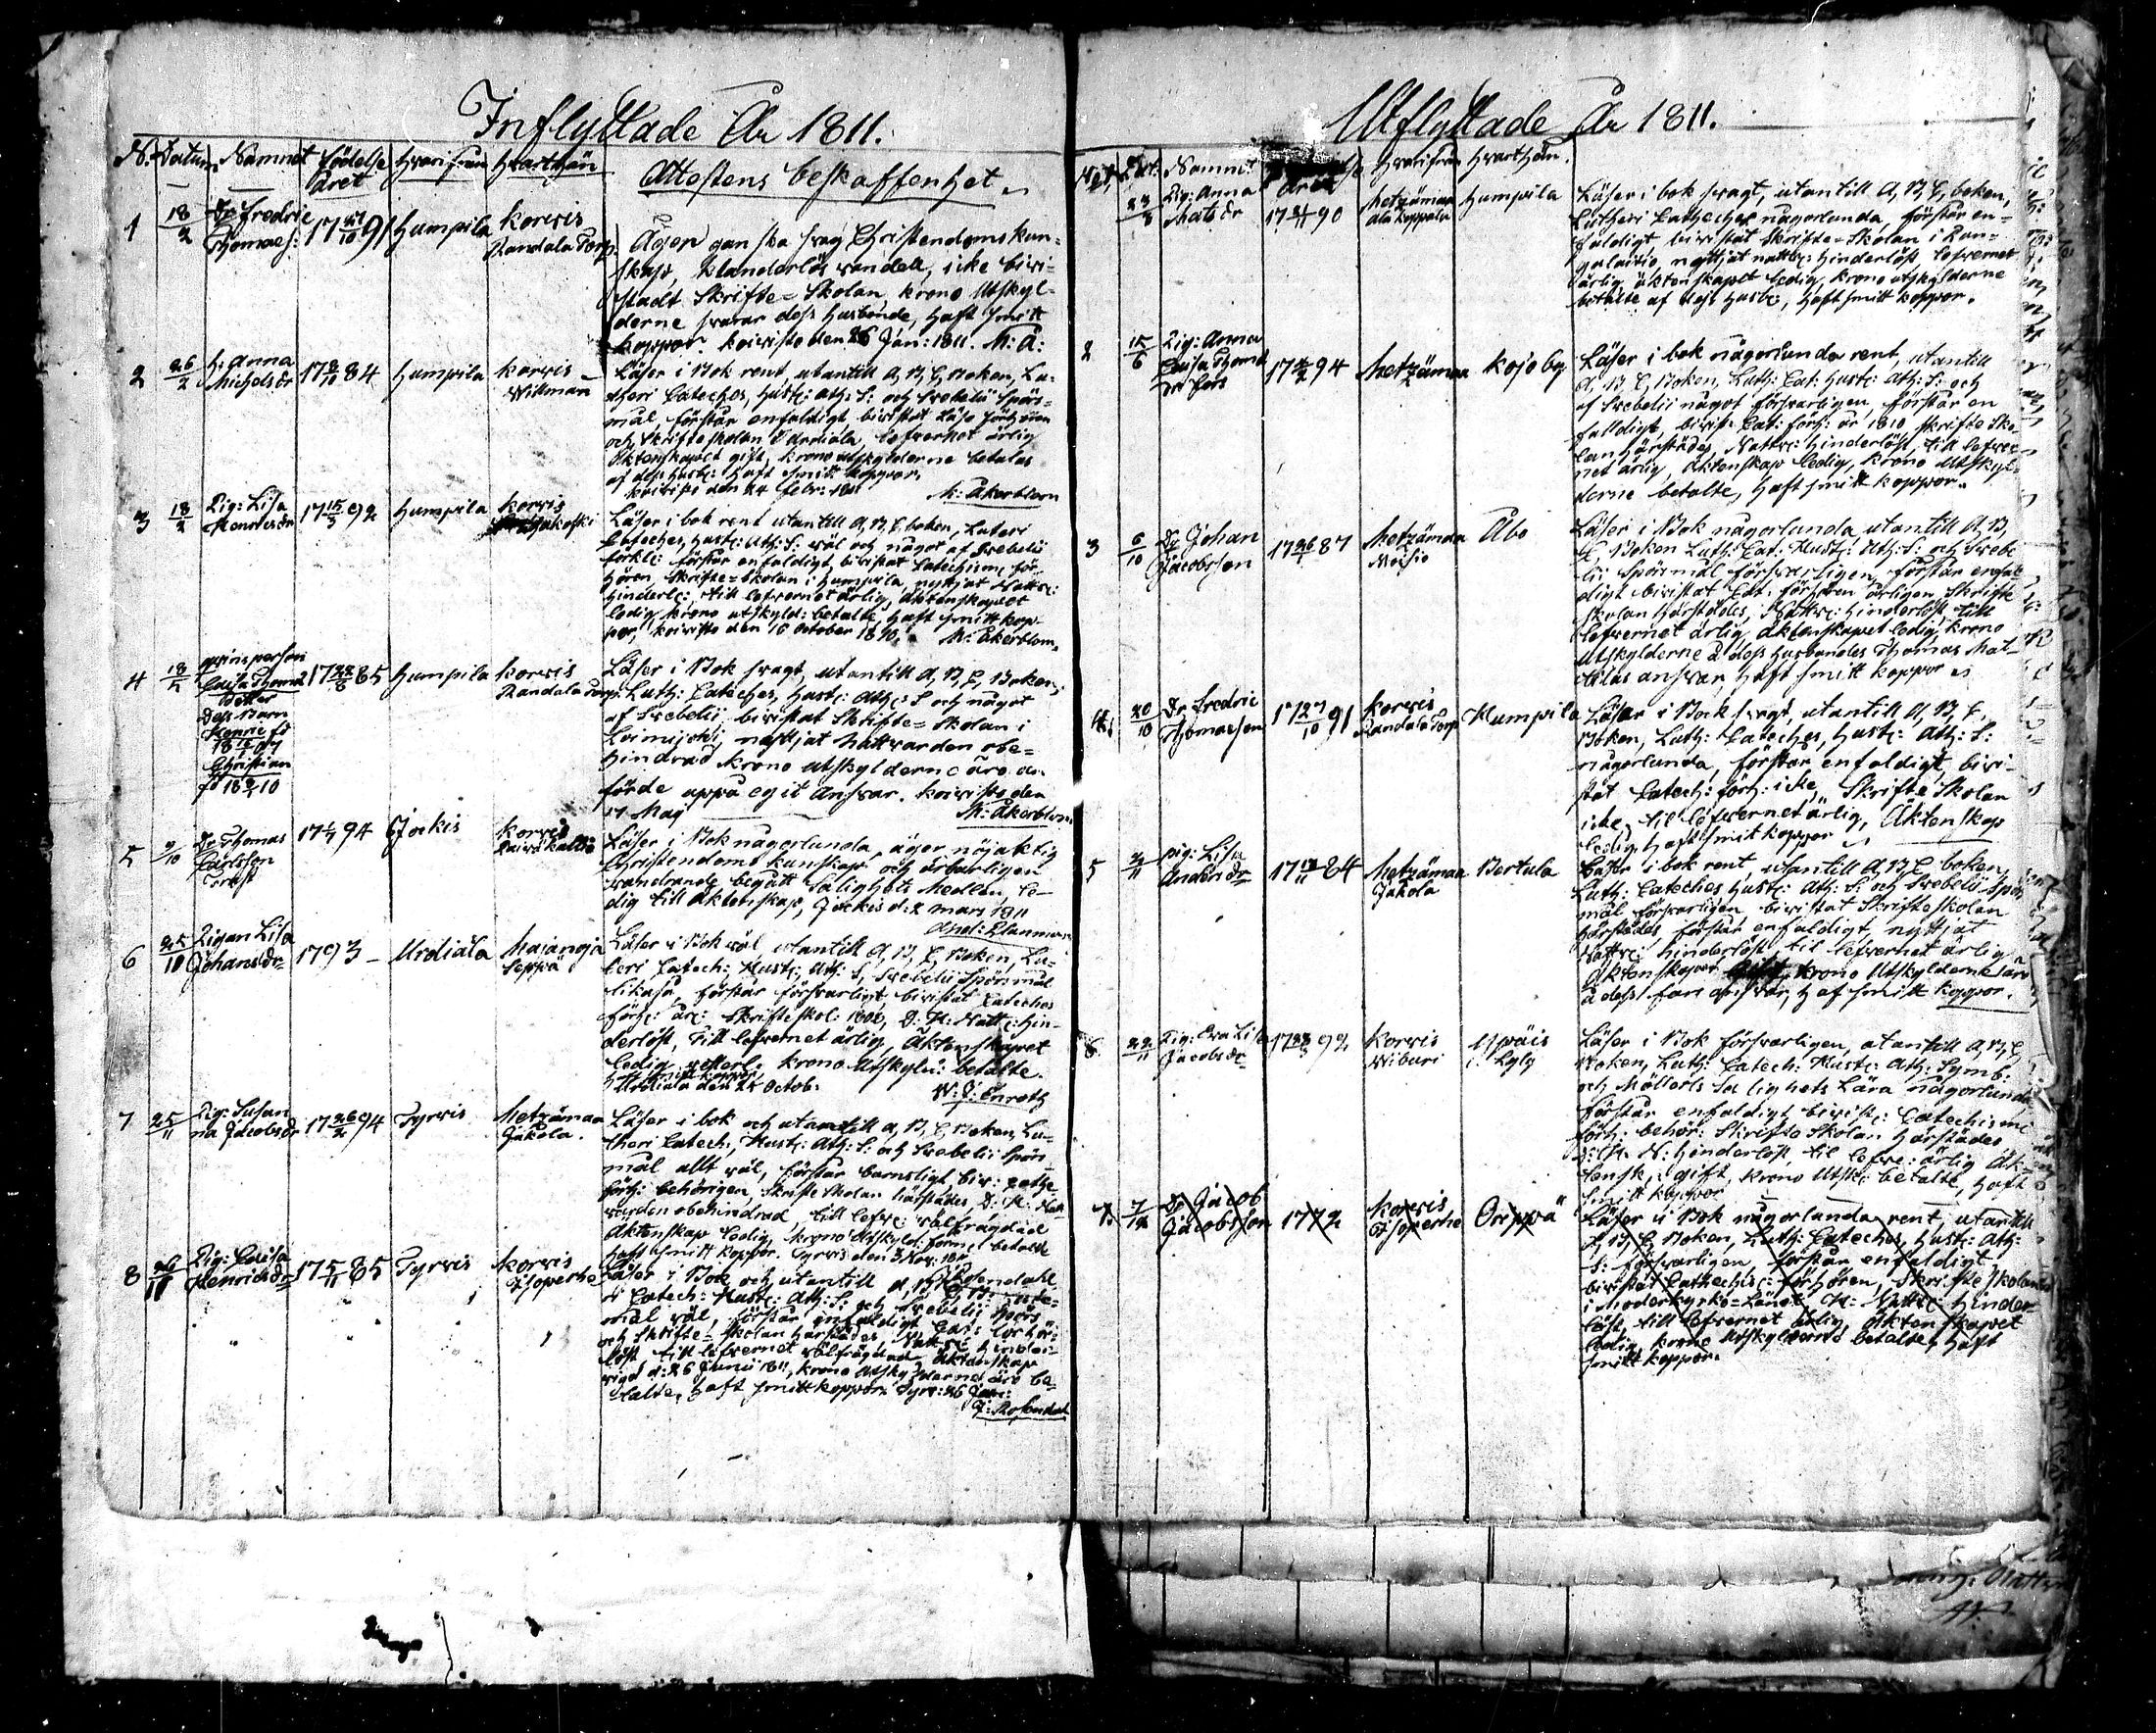 Inflyttade År 1811.
N. Datum Namnet födelse året Hvarifrån Hvarthän Attestens beskaffenhet
1 18/2 Dr. Fredric Thomaess: 17 27/10 91 Humpila Korvis Randala Torp
Äger ganska svag Christendoms kun-
skap, Klanderlös vandell, icke bivi-
stadt Skrifte-Skolan, krono Utskyl-
derne svarar dess Husbonde, Haft smitt
koppor. Koivisto den 26 Jan: 1811. M: Å:
2 26/2 H: Anna Michelsdr 17 84 Humpila Korvis Willman
Läser i Bok rent, utantill A, B, C, Boken, Lu-
theri Cateches, Hust: Ath: S: och Svebelii Spörs-
mål förstår enfaldigt, bivistat Läse förhören
och Skrifteskolan, lefvernet ärlig
Äktenskapet gift, krono utskylderne betalas
af dess Husb: Haft smitt koppor.
Koivisto den 24 Febr: 1811 M: Åkerblom
3 18/2 Pig: Lisa Henricsdr 17 15/3 92 Humpila Korvis
Läser i bok rent utantill A, B, C boken, Luteri
Cateches, Hust: Ath: S: väl och något af Svebelii
förkl: förstår enfaldigt, bivistat Catechism för-
hören, Skrifte-Skolan i Humpila, nyttjat Nattv:
hinderl: till lefvernet ärlig, Äktenskapet
ledig, krono utskyld: betalte, haft smitt kop-
por, Koivisto den 10 October 1810. M: Åkerblom
4 18/5 qvinsperson Caisa Thomæ Dotter Dess Barn Henric fö 18 07 Christian fö 18 10 17 22/8 65 Humpila Korvis Randala Torp
Läser i Bok svagt, utantill A, B, C, Boken,
Luth: Cateches, Hust: Ath: S och något
af Svebelii, bivistat Skrifte-Skolan i
Loimijoki, nyttjat Nattvarden obe-
hindrad krono utskylderne äro
förde uppå egit Ansvar. Koivisto den
17 Maj M: Åkerblom
5 9/10 Dr Thomas Carlsson 17 94 Jockis Korvis
Läser i Bok någorlunda, äger nöjaktig
Christendoms kunskap och ärbarligen
vandrande begått Salighets Medlen, le-
dig till Äktenskap, Jockis d: 2 Mars 1811
6 25/10 Pigan Lisa Johansdr 1793 Urdiala Majanoja Seppä
Läser i Bok väl, utantill A, B, C, Boken, Lu-
teri Catech: Hust: Ath: S, Svebelii Spörsmål
likaså, förstår försvarligt, bivistat Cateches
förh: årl: Skrifteskol: 1808, D: H: Nattv: hin-
derlöst, till lefvernet ärlig, Äktenskapet
ledig, krono Utskyl: betalte.
Haft smitt koppor,
Urdiala den 25 Octob:
7 25/11 Pig: Susanna Jacobsdr 17 26/2 94 Tyrvis Metzämaa Jakola.
Läser i bok och utantill A, B, C, Boken, Lu-
theri Catech:, Hust: Ath: S: och Svebelii Spörs
mål allt väl, förstår barnsligt, biv:
förh: behörigen, Skrifte Skolan härstädes, D: H: Natt
varden obehindrad, till lefv: välfrägdad
Äktenskap ledig, krono Utskyld: betalte
Haft smitt koppor. Tyrvis den 3 Nov: 1811
8 26/11 Pig: Caisa Henricsdr 17 5/11 85 Tyrvis Korvis Isoperhe
Läser i Bok och utantill A, B, C,
ri Catech: Hust: Ath: S: och Svebelii Spörs
mål väl, förstår enfaldigt, Cat: förhör:
och Skrifte-Skolan härstädes, Nattv: hinder-
löst, till lefvernet välfrägdad Äktenskap
d: 26 Junii 1811, krono Utskylderne äro be-
talte, haft smitt koppor. Tyrv: 26
J: Rosendahl
Utflyttade År 1811.
Namnet Året Hvarifrån Hvarthän.
23/3 Pig: Anna Matsdr 17 90 Metzämaa Ala Koppala Humpila
Läser i bok svagt, utantill A, B, C, boken,
Lutheri Catheches någorlunda, förstår en-
faldigt, bivistat Skrifte-Skolan i Kan-
galaitio, nyttjat nattv: hinderlöst, lefvernet
ärlig, äktenskapet ledig, krono utskylderne
betalte af dess Husb:, Haft smitt koppor.
2 15/6 Pig: Anna Caisa Thomæ dr 17 94 Metzämaa Kojo by
Läser i bok någorlunda rent, utantill
A, B, C, Boken, Luth: Cat: Hust: Ath: S: och
af Svebelii något försvarligen, förstår en
falldigt, bivist: Cat: förh: år 1810, Skrifte Sko-
lan härstädes, Nattv: hinderlöst, till lefver-
net ärlig, Äktenskap ledig, krono Utskyl-
derne betalte, haft smitt koppor.
3 6/10 Dr Johan Jacobsson 17 26 87 Metzämaa Moisio Åbo
Läser i Bok någorlunda, utantill A, B,
C, Boken Luth: Cat: Hust: Ath: S: och Svebe
lii Spörsmål försvarligen, förstår enfal
digt bivistat Cat: förhören årligen, Skrifte
skolan härstädes, Nattv: hinderlöst, till
lefvernet ärlig, Äktenskapet ledig, krono
Utskylderne å dess Husbondes Thomas Mat-
tilas ansvar, haft smitt koppor
4. 20/10 Dr Fredric Thomasson 17 27/10 91 Korvis Randala Torp Humpila
Läser i Bok svagt, utantill A, B, C,
Boken, Luth: Cateches, Hust: Ath: S:
någorlunda, förstår enfaldigt, bivi-
stat Catech: förh: icke, Skrifte Skolan
icke, til lefvernet ärlig, Äktenskap
ledig, haft smitt koppor
5 pig: Lisa Andersdr 17 84 Metzämaa Jakola Bertula
Läser i bok rent, utantill A, B, C boken,
Luth: Cateches, Hust: Ath: S: och Svebelii Spörs
mål försvarligen bivistat Skrifteskolan
härstädes, förstår enfaldigt, nyttjat
Nattv: hinderlöst til lefvernet ärlig
Äktenskapet krono Utskylderne äro
å dess ansvar, haf smitt koppor.
6 22/11 Pig: Eva Lisa Jacobsdr 17 92 Korvis Wibari Ypäis
Läser i Bok försvarligen, utantill A, B, C
Boken, Luth: Catech: Hust: Ath: Symb:
och Möllers Salighets Lära någorlunda
förstår enfaldigt, bivist: Catechismi
förh: behör: Skrifte Skolan härstädes
D: H: N: hinderlöst til lefve: ärlig Äk-
tensk: gift, krono Utsk: betalte, haft
smitt koppor
7. 7/12 Dr Jacob Jacobsson 1772 Korvis Isoperhe Oripää
Läser i Bok någorlunda rent, utantill
A, B, C, Boken, Luth: Cateches, Hust: Ath:
S: försvarligen, förstår enfaldigt,
bivistat Cathechis: förhören, Skrifte Skolan
i Moderkyrko-Länet, H: Nattv: hinder-
löst, till lefvernet ärlig, Äktenskapet
ledig, krono Utskylderne betalte, haft
smitt koppor.